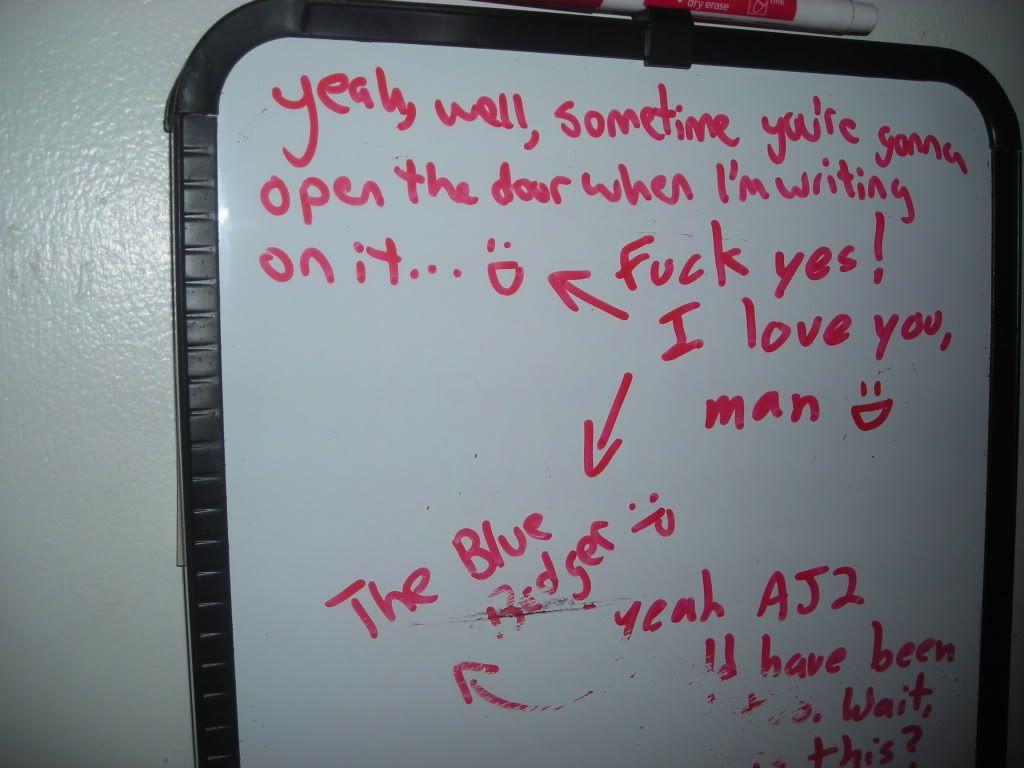 dry erase
fine
yeah, well, sometime you're gonna
open the door when I'm writing
on it...
Fuck yes!
I love you,
man
The Blue
yeah AJ2
have been
Wait,
this?